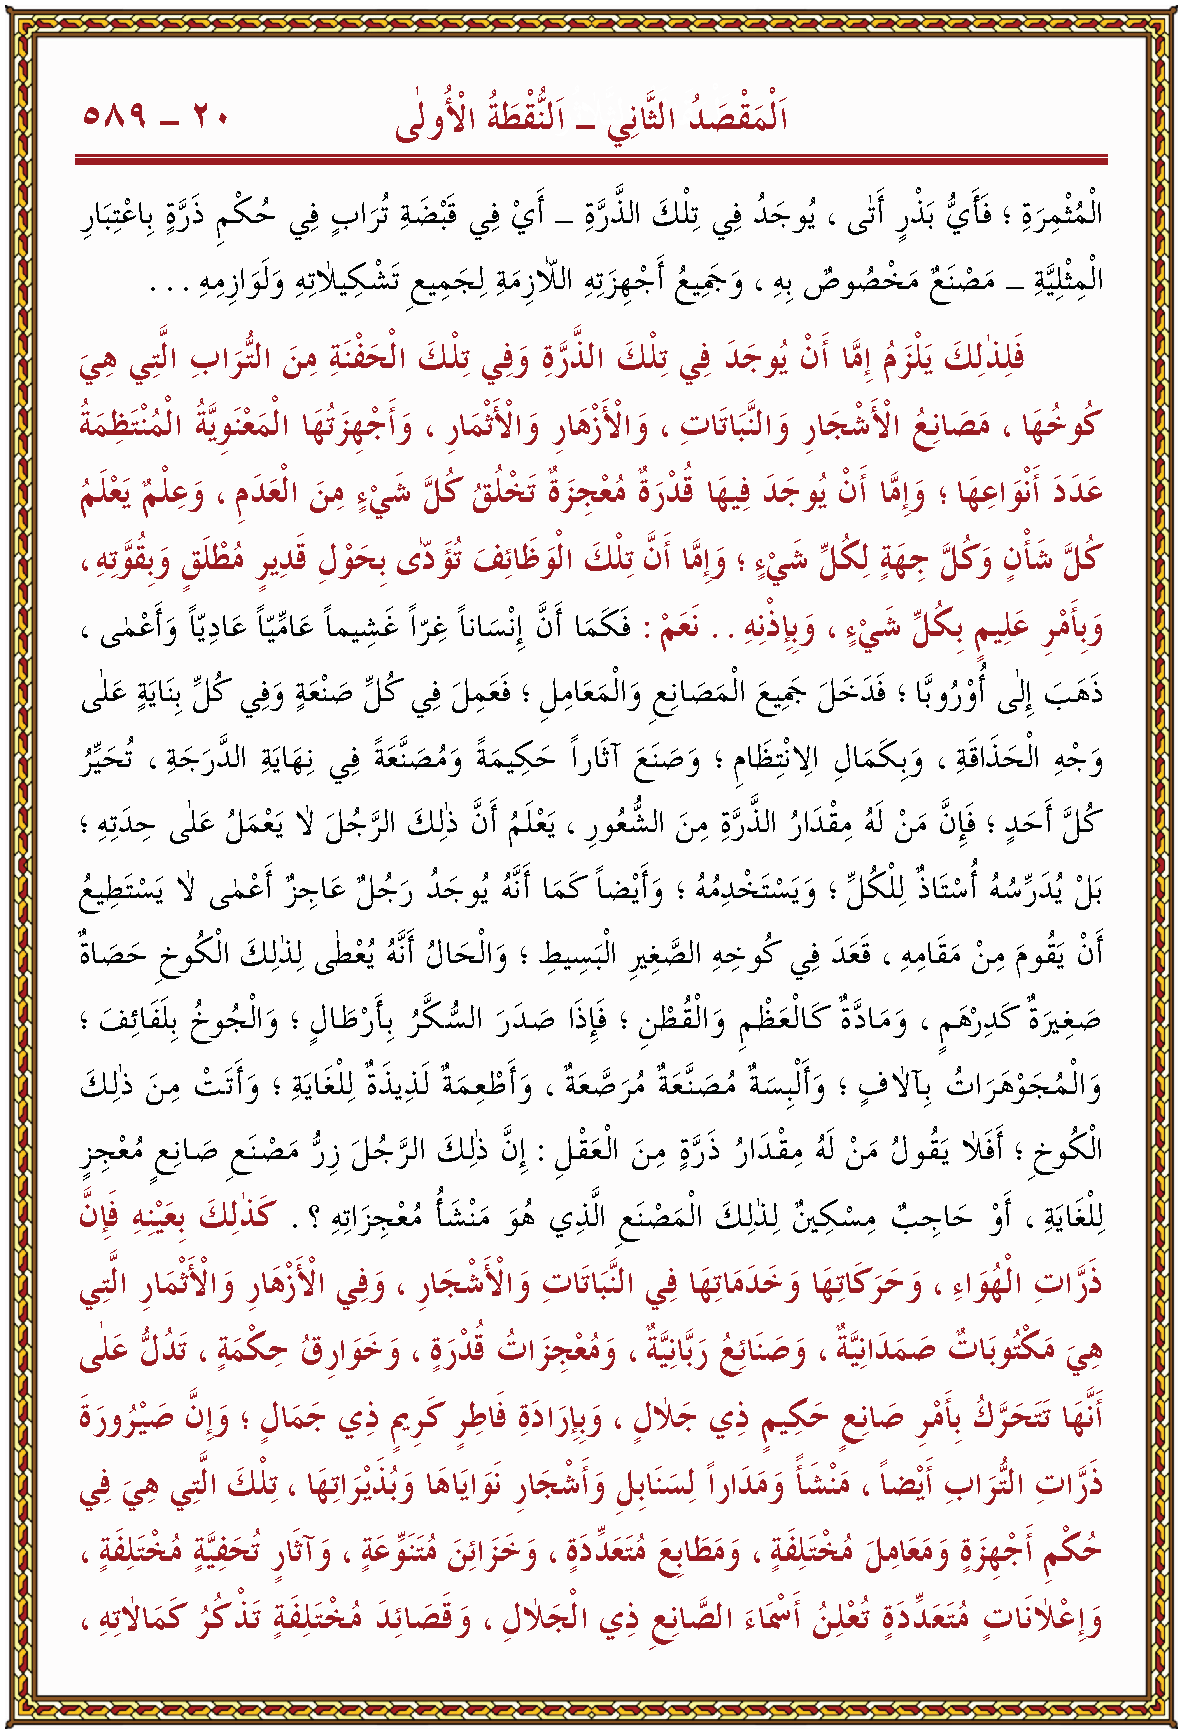 اَلْمَقْصَدُ الثَّانِي ــ اَلنُّقْطَةُ الْأُولٰى ٢٠ ــ ٥٨٩
الْمُثْمِرَةِ ؛ فَأَيُّ بَذْرٍ أَتٰى ، يُوجَدُ فِي تِلْكَ الذَّرَّةِ ــ أَيْ فِي قَبْضَةِ تُرَابٍ فِي حُكْمِ ذَرَّةٍ بِاعْتِبَارِ
الْمِثْلِيَّةِ ــ مَصْنَعٌ مَخْصُوصٌ بِهِ ، وَجَمِيعُ أَجْهِزَتِهِ اللَّازِمَةِ لِجَمِيعِ تَشْكِيلَاتِهِ وَلَوَازِمِهِ . . .
فَلِذٰلِكَ يَلْزَمُ إِمَّا أَنْ يُوجَدَ فِي تِلْكَ الذَّرَّةِ وَفِي تِلْكَ الْحَفْنَةِ مِنَ التُّرَابِ الَّتِي هِيَ
كُوخُهَا ، مَصَانِعُ الْأَشْجَارِ وَالنَّبَاتَاتِ ، وَالْأَزْهَارِ وَالْأَثْمَارِ ، وَأَجْهِزَتُهَا الْمَعْنَوِيَّةُ الْمُنْتَظِمَةُ
عَدَدَ أَنْوَاعِهَا ؛ وَإِمَّا أَنْ يُوجَدَ فِيهَا قُدْرَةٌ مُعْجِزَةٌ تَخْلُقُ كُلَّ شَيْءٍ مِنَ الْعَدَمِ ، وَعِلْمٌ يَعْلَمُ
كُلَّ شَأْنٍ وَكُلَّ جِهَةٍ لِكُلِّ شَيْءٍ ؛ وَإِمَّا أَنَّ تِلْكَ الْوَظَائِفَ تُؤَدّٰى بِحَوْلِ قَدِيرٍ مُطْلَقٍ وَبِقُوَّتِهِ ،
وَبِأَمْرِ عَلِيمٍ بِكُلِّ شَيْءٍ ، وَبِإِذْنِهِ . . نَعَمْ : فَكَمَا أَنَّ إِنْسَاناً غِرّاً غَشِيماً عَامِّيّاً عَادِيّاً وَأَعْمٰى ،
ذَهَبَ إِلٰى أُورُوبَّا ؛ فَدَخَلَ جَمِيعَ الْمَصَانِعِ وَالْمَعَامِلِ ؛ فَعَمِلَ فِي كُلِّ صَنْعَةٍ وَفِي كُلِّ بِنَايَةٍ عَلٰى
وَجْهِ الْحَذَاقَةِ ، وَبِكَمَالِ الِانْتِظَامِ ؛ وَصَنَعَ آثَاراً حَكِيمَةً وَمُصَنَّعَةً فِي نِهَايَةِ الدَّرَجَةِ ، تُحَيِّرُ
كُلَّ أَحَدٍ ؛ فَإِنَّ مَنْ لَهُ مِقْدَارُ ذَرَّةٍ مِنَ الشُّعُورِ ، يَعْلَمُ أَنَّ ذٰلِكَ الرَّجُلَ لَا يَعْمَلُ عَلٰى حِدَتِهِ ؛
بَلْ يُدَرِّسُهُ أُسْتَاذٌ لِلْكُلِّ ؛ وَيَسْتَخْدِمُهُ ؛ وَأَيْضاً كَمَا أَنَّهُ يُوجَدُ رَجُلٌ عَاجِزٌ أَعْمٰى لَا يَسْتَطِيعُ
أَنْ يَقُومَ مِنْ مَقَامِهِ ، قَعَدَ فِي كُوخِهِ الصَّغِيرِ الْبَسِيطِ ؛ وَالْحَالُ أَنَّهُ يُعْطٰى لِذٰلِكَ الْكُوخِ حَصَاةٌ
صَغِيرَةٌ كَدِرْهَمٍ ، وَمَادَّةٌ كَالْعَظْمِ وَالْقُطْنِ ؛ فَإِذَا صَدَرَ السُّكَّرُ بِأَرْطَالٍ ؛ وَالْجُوخُ بِلَفَائِفَ ؛
وَالْمُجَوْهَرَاتُ بِآلَافٍ ؛ وَأَلْبِسَةٌ مُصَنَّعَةٌ مُرَصَّعَةٌ ، وَأَطْعِمَةٌ لَذِيذَةٌ لِلْغَايَةِ ؛ وَأَتَتْ مِنَ ذٰلِكَ
الْكُوخِ ؛ أَفَلَا يَقُولُ مَنْ لَهُ مِقْدَارُ ذَرَّةٍ مِنَ الْعَقْلِ : إِنَّ ذٰلِكَ الرَّجُلَ زِرُّ مَصْنَعِ صَانِعٍ مُعْجِزٍ
لِلْغَايَةِ ، أَوْ حَاجِبٌ مِسْكِينٌ لِذٰلِكَ الْمَصْنَعِ الَّذِي هُوَ مَنْشَأُ مُعْجِزَاتِهِ ؟ . كَذٰلِكَ بِعَيْنِهِ فَإِنَّ
ذَرَّاتِ الْهُوَاءِ ، وَحَرَكَاتِهَا وَخَدَمَاتِهَا فِي النَّبَاتَاتِ وَالْأَشْجَارِ ، وَفِي الْأَزْهَارِ وَالْأَثْمَارِ الَّتِي
هِيَ مَكْتُوبَاتٌ صَمَدَانِيَّةٌ ، وَصَنَائِعُ رَبَّانِيَّةٌ ، وَمُعْجِزَاتُ قُدْرَةٍ ، وَخَوَارِقُ حِكْمَةٍ ، تَدُلُّ عَلٰى
أَنَّهَا تَتَحَرَّكُ بِأَمْرِ صَانِعٍ حَكِيمٍ ذِي جَلَالٍ ، وَبِإِرَادَةِ فَاطِرٍ كَرِيمٍ ذِي جَمَالٍ ؛ وَإِنَّ صَيْرُورَةَ
ذَرَّاتِ التُّرَابِ أَيْضاً ، مَنْشَأً وَمَدَاراً لِسَنَابِلِ وَأَشْجَارِ نَوَايَاهَا وَبُذَيْرَاتِهَا ، تِلْكَ الَّتِي هِيَ فِي
حُكْمِ أَجْهِزَةٍ وَمَعَامِلَ مُخْتَلِفَةٍ ، وَمَطَابِعَ مُتَعَدِّدَةٍ ، وَخَزَائِنَ مُتَنَوِّعَةٍ ، وَآثَارٍ تُحَفِيَّةٍ مُخْتَلِفَةٍ ،
وَإِعْلَانَاتٍ مُتَعَدِّدَةٍ تُعْلِنُ أَسْمَاءَ الصَّانِعِ ذِي الْجَلَالِ ، وَقَصَائِدَ مُخْتَلِفَةٍ تَذْكُرُ كَمَالَاتِهِ ،